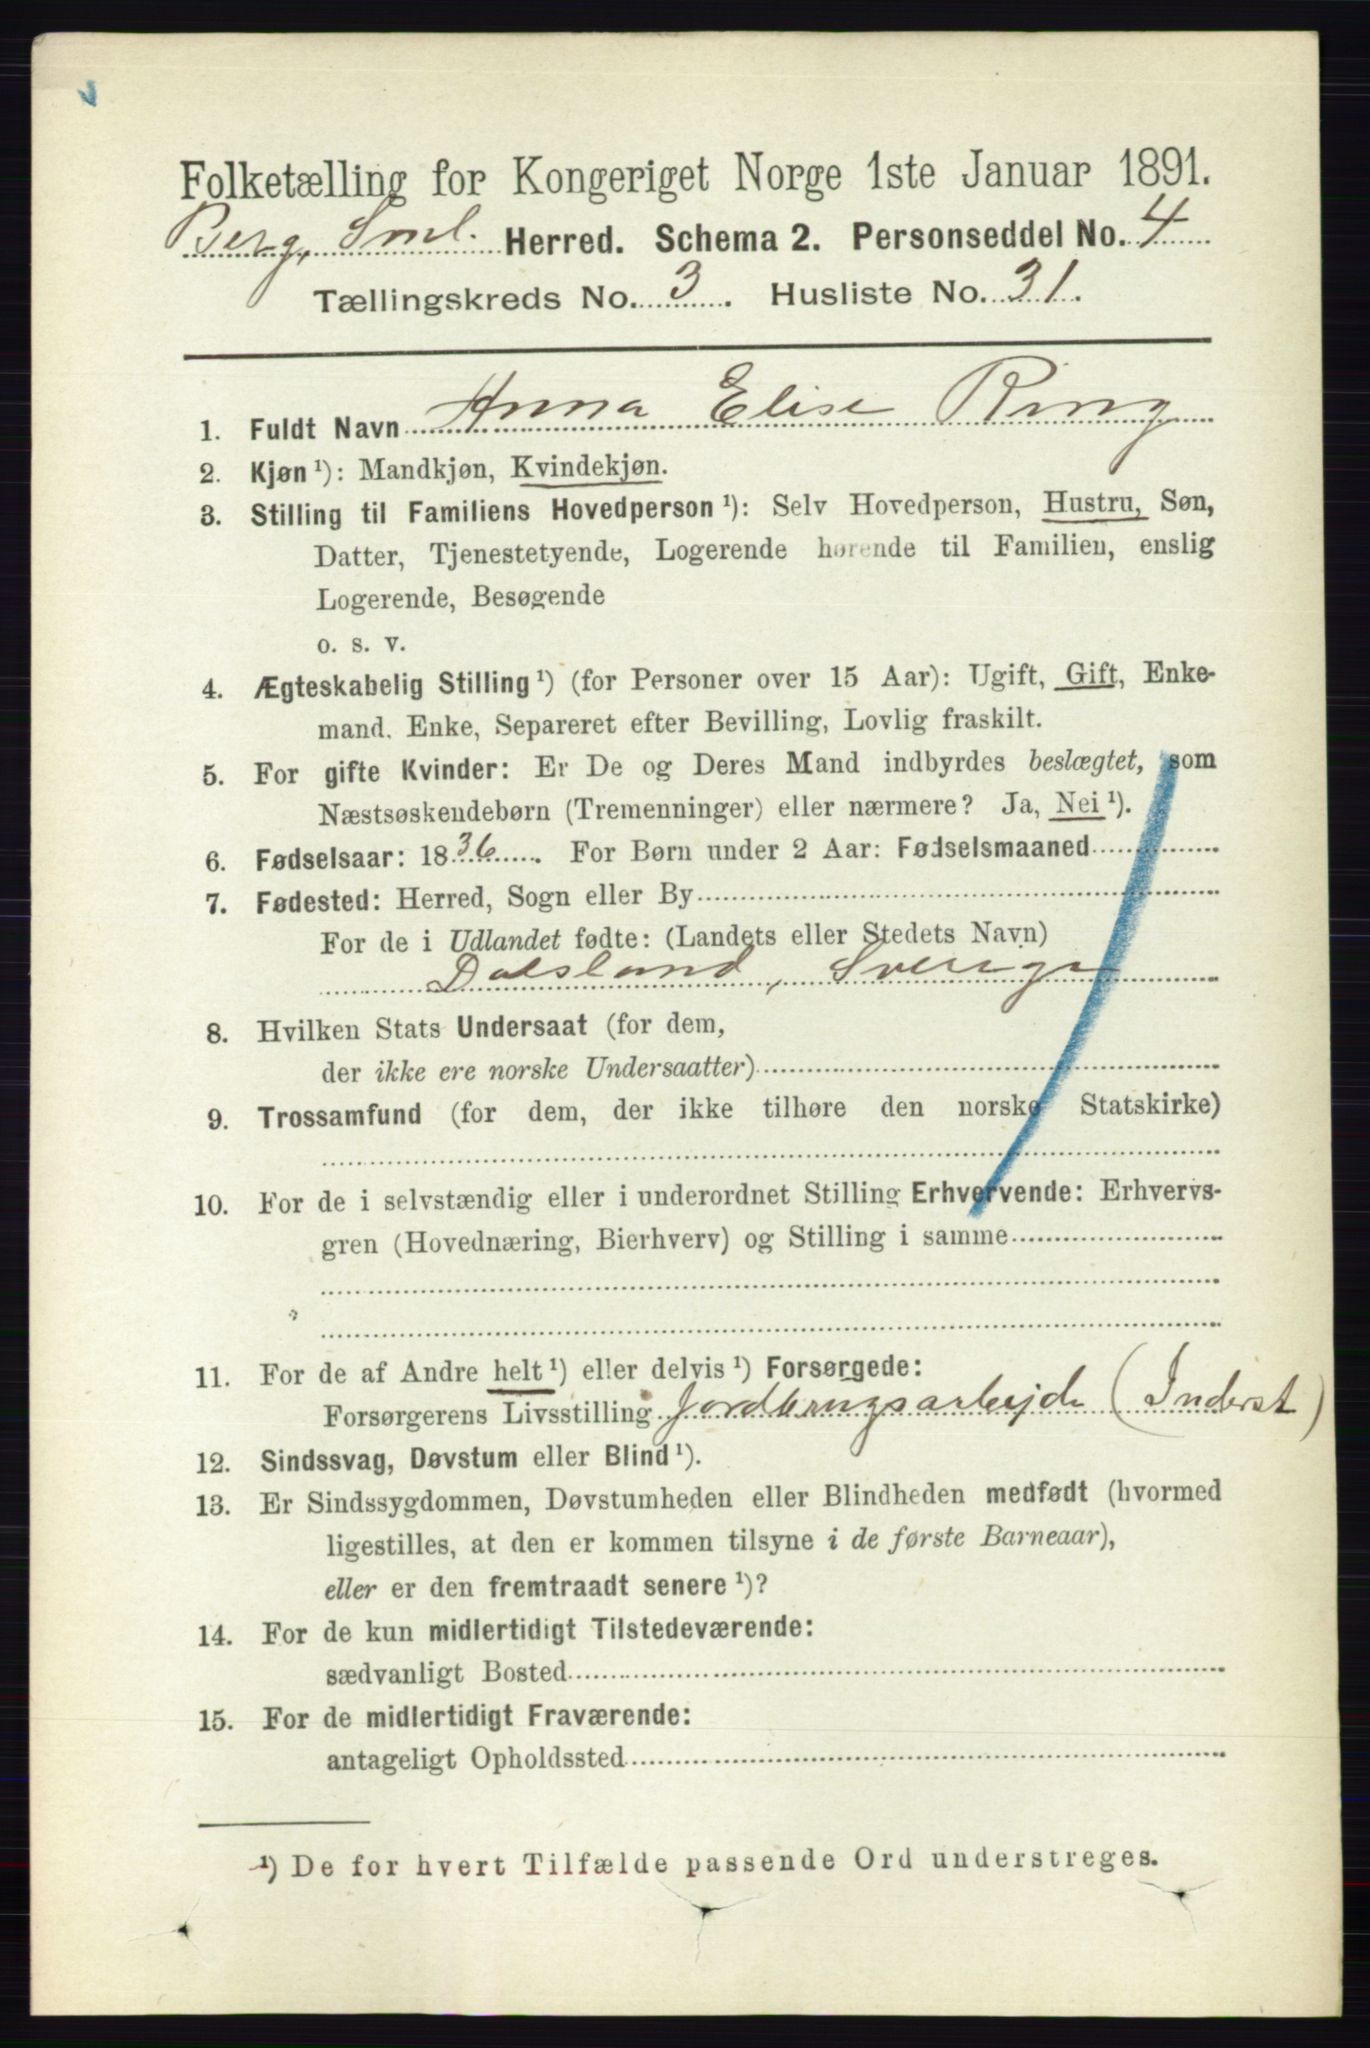 Folketælling for Kongeriget Norge 1ste Januar 1891.
Berg, Sml. Herred. Schema 2. Personseddel No. 4
Tællingskreds No. 3. Husliste No. 31.
1. Fuldt Navn Anna Elise Ring
2. Kjøn ¹): Mandkjøn, Kvindekjøn.
3. Stilling til Familiens Hovedperson ¹): Selv Hovedperson, Hustru, Søn,
Datter, Tjenestetyende, Logerende hørende til Familien, enslig
Logerende, Besøgende
o. s. v.
4. Ægteskabelig Stilling ¹) (for Personer over 15 Aar): Ugift, Gift, Enke-
mand, Enke, Separeret efter Bevilling, Lovlig fraskilt.
5. For gifte Kvinder: Er De og Deres Mand indbyrdes beslægtet, som
Næstsøskendebørn (Tremenninger) eller nærmere? Ja, Nei ¹).
6. Fødselsaar: 1836. For Børn under 2 Aar: Fødselsmaaned
7. Fødested: Herred, Sogn eller By
For de i Udlandet fødte: (Landets eller Stedets Navn)
Dalsland, Sverige
8. Hvilken Stats Undersaat (for dem,
der ikke ere norske Undersaatter)
9. Trossamfund (for dem, der ikke tilhøre den norske Statskirke)
10. For de i selvstændig eller i underordnet Stilling Erhvervende: Erhvervs-
gren (Hovednæring, Bierhverv) og Stilling i samme
11. For de af Andre helt ¹) eller delvis ¹) Forsørgede:
Forsørgerens Livsstilling Jordbrugsarbejde (Inderst)
12. Sindssvag, Døvstum eller Blind ¹).
13. Er Sindssygdommen, Døvstumheden eller Blindheden medfødt (hvormed
ligestilles, at den er kommen tilsyne i de første Barneaar),
eller er den fremtraadt senere ¹)?
14. For de kun midlertidigt Tilstedeværende:
sædvanligt Bosted
15. For de midlertidigt Fraværende:
antageligt Opholdssted
¹) De for hvert Tilfælde passende Ord understreges.